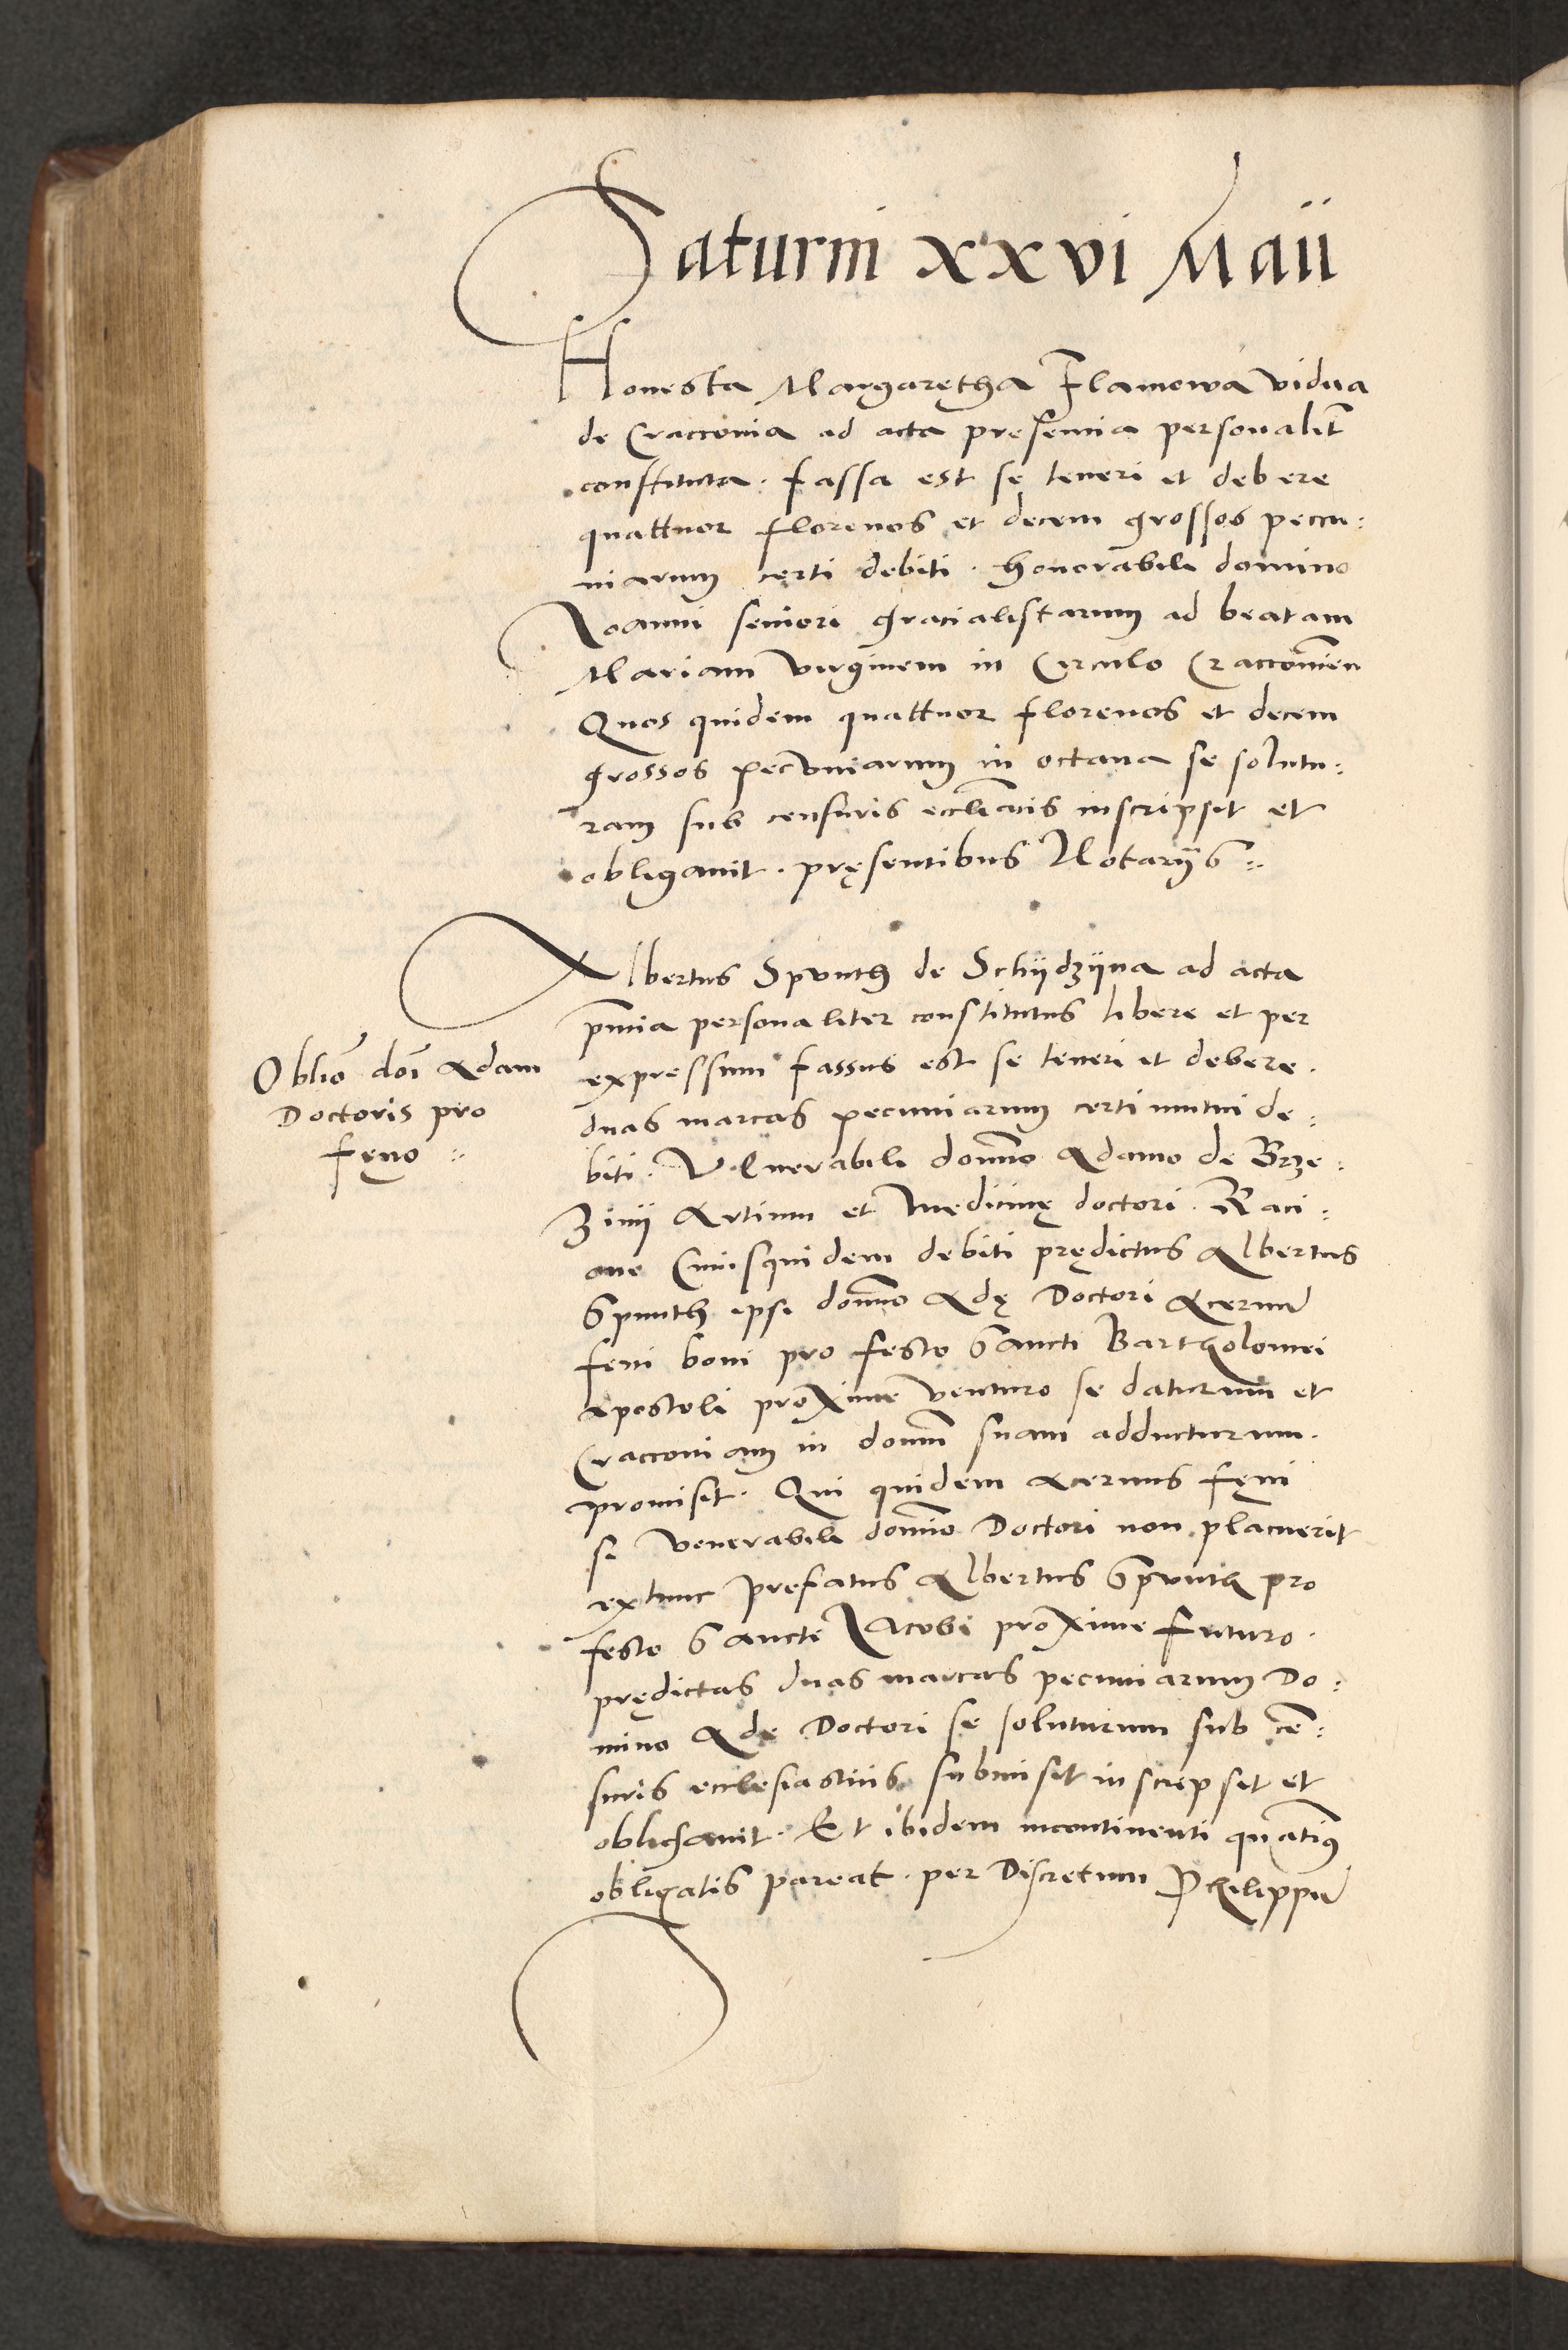 Saturni xxvi Maii
Honesta Margaretha Flamowa vidua
de Cracconia ad acta presencia personalit
constituta. fassa est se teneri et debere
quattuor florenos et decem grossos peccu:
niarum certi debiti. honorabili domino
Joanni seniori gracialistarum ad beatam
Mariam virginem in Circulo Cracconien
Quos quidem quattuor florenos et decem
grossos pecuniarum in octava se solutu:
ram sub censuris ecclieatis inscripsit et
obligavit. pręsentibus Notarijs :.
Albertus Spunth de Schijdzijna ad acta
pnnia personaliter constitutus libere et per
expressum fassus est se teneri et debere.
Oblio doi Adam
Doctoris pro
fęno :.
duas marcas pecuniarum certi mutui de:
biti. Venerabili domino Adamo de Brze:
zinij Artium et Medicinę doctori. Raci:
one Cuiusquidem debiti prędictus Albertus
Spunth ipsi domino Adę Doctori Acervu
feni boni pro festo Sancti Bartholomei
apostoli proxime venturo se daturum et
Cracconiam in domum suam adducturum.
promisit. Qui quidem acervus fęni
si venerabili domino Doctori non placuerit
extunc prefatus Albertus Spunth pro
festo Sancti Jacobi proxime futuro.
prędictas duas marcas pecuniarum Do:
mino Adę Doctori se soluturum sub cē:
suris ecclesiasticis submisit inscripsit et
obligavit. Et ibidem incontinenti quatius
obligatis pareat. per Discretum Philippu